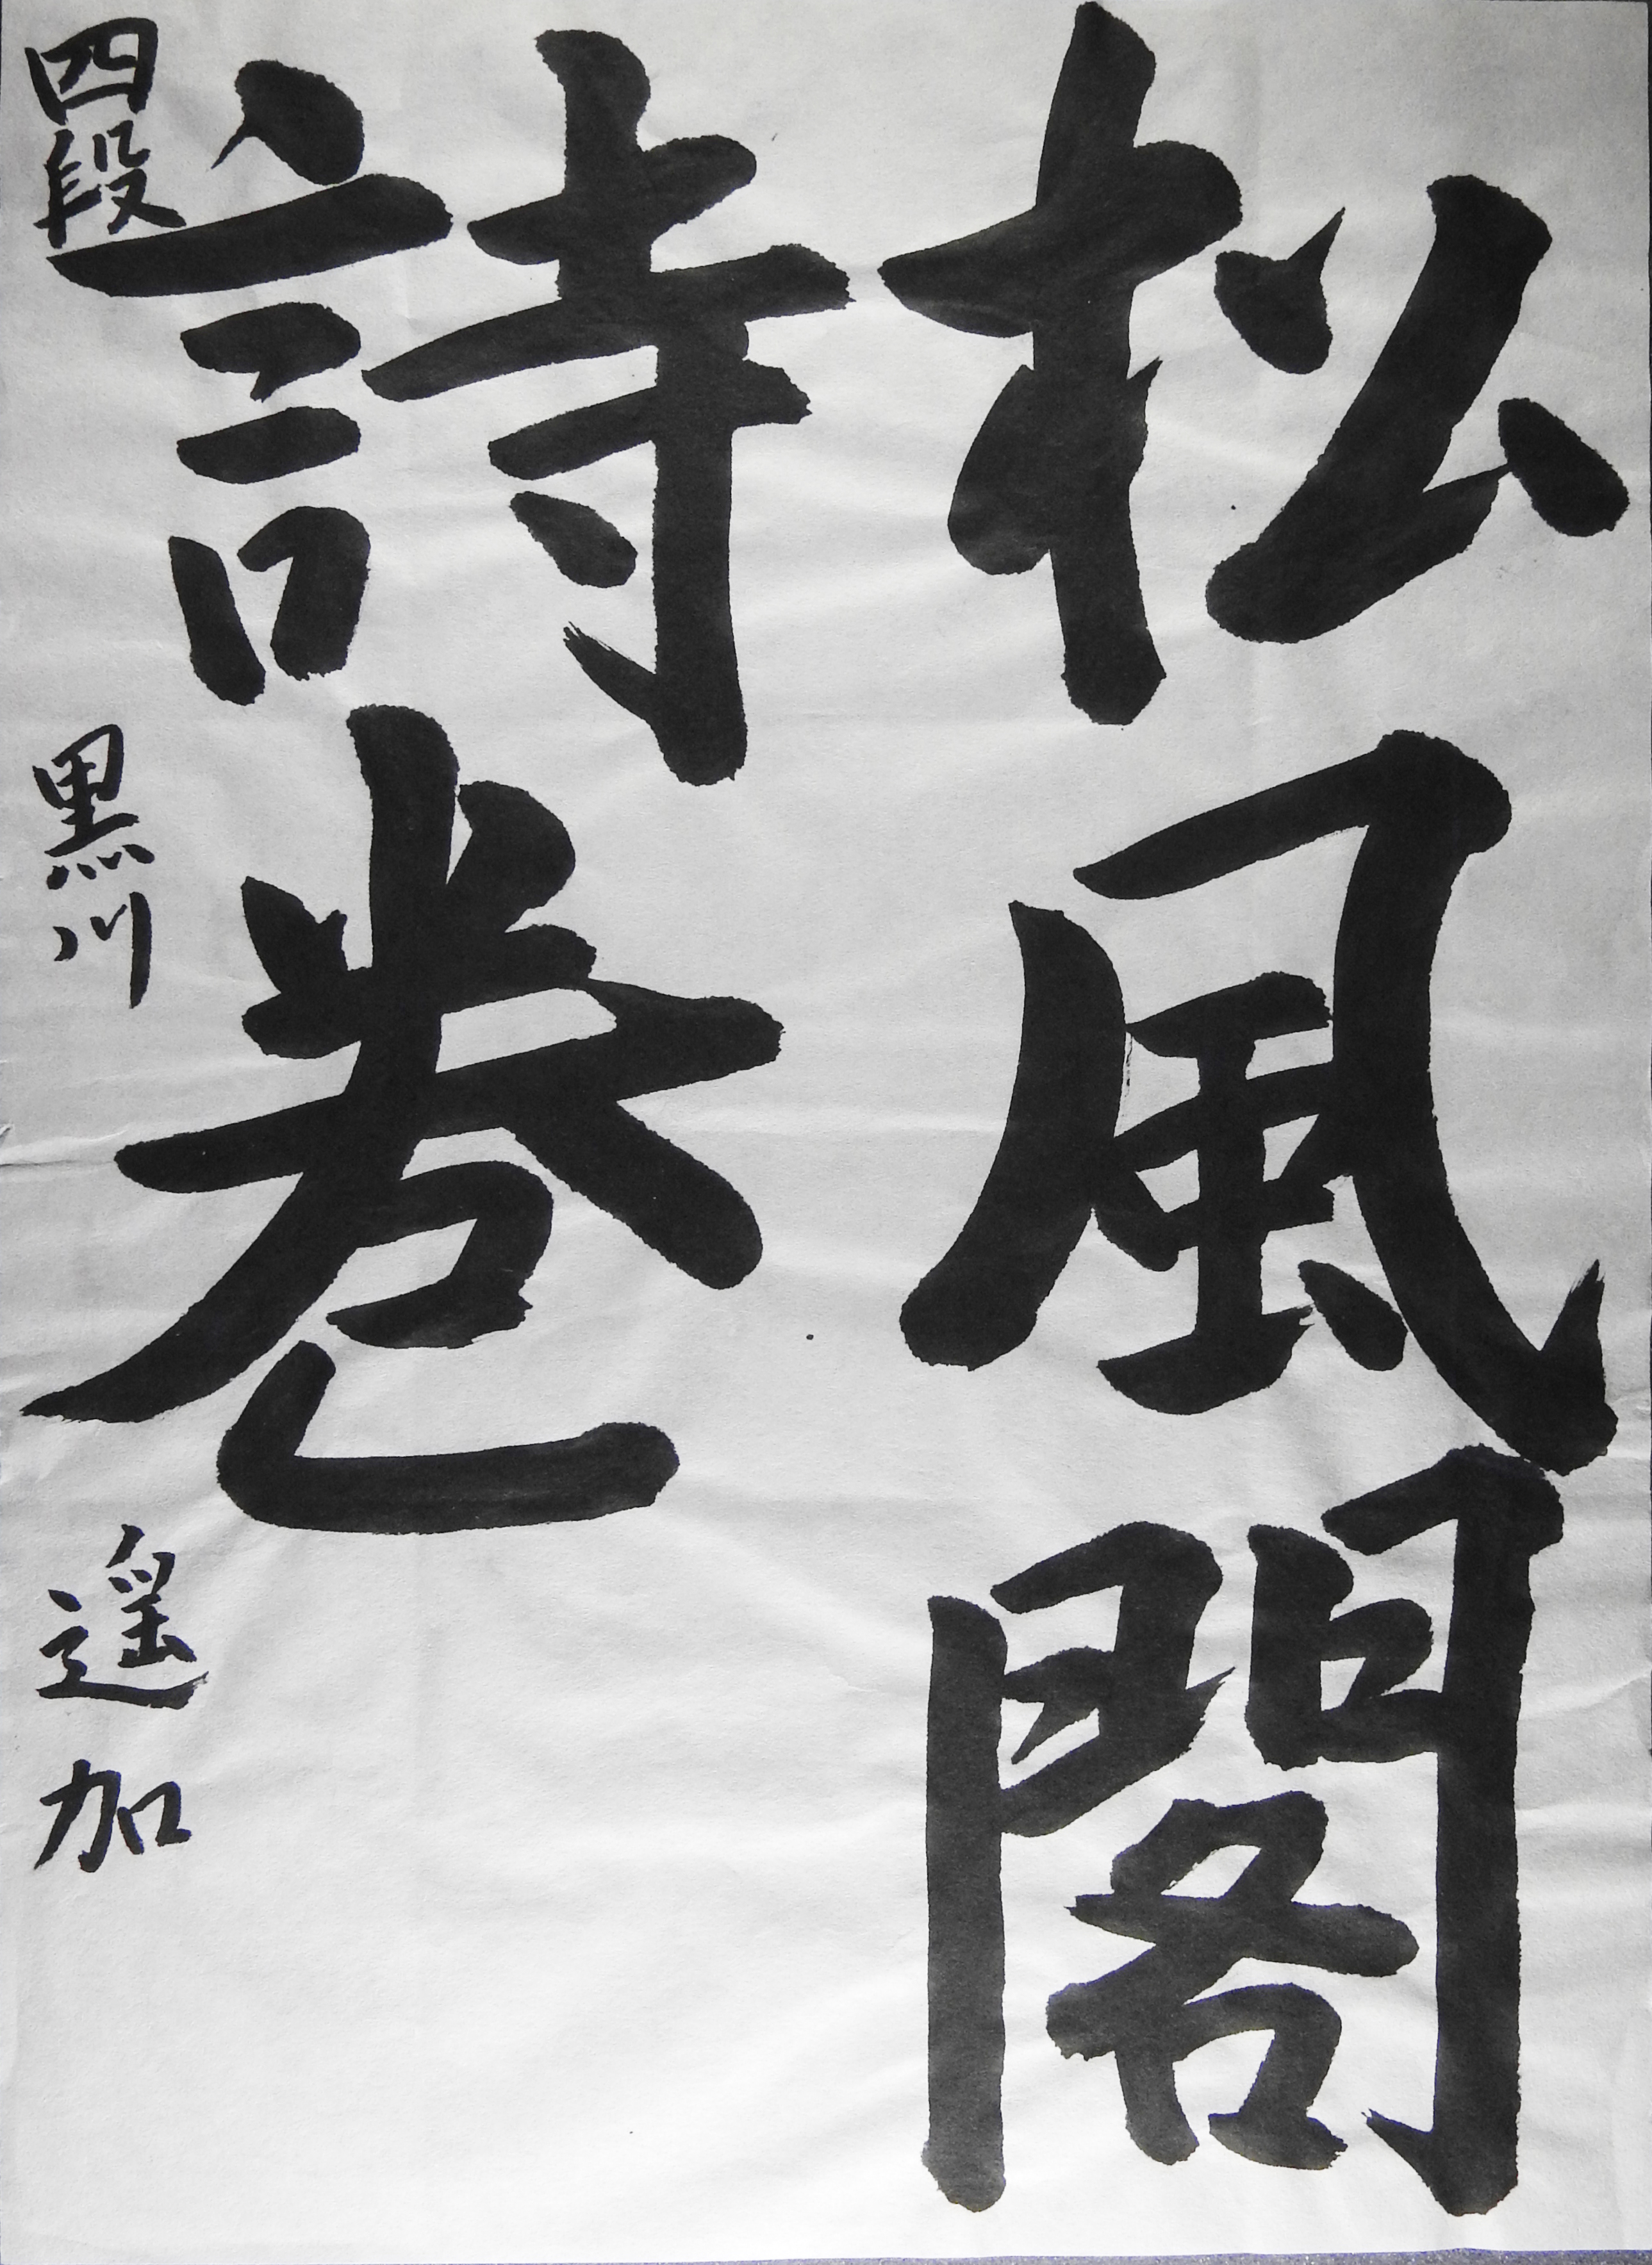 松風閣
詩巻
四段 黒川 遥加